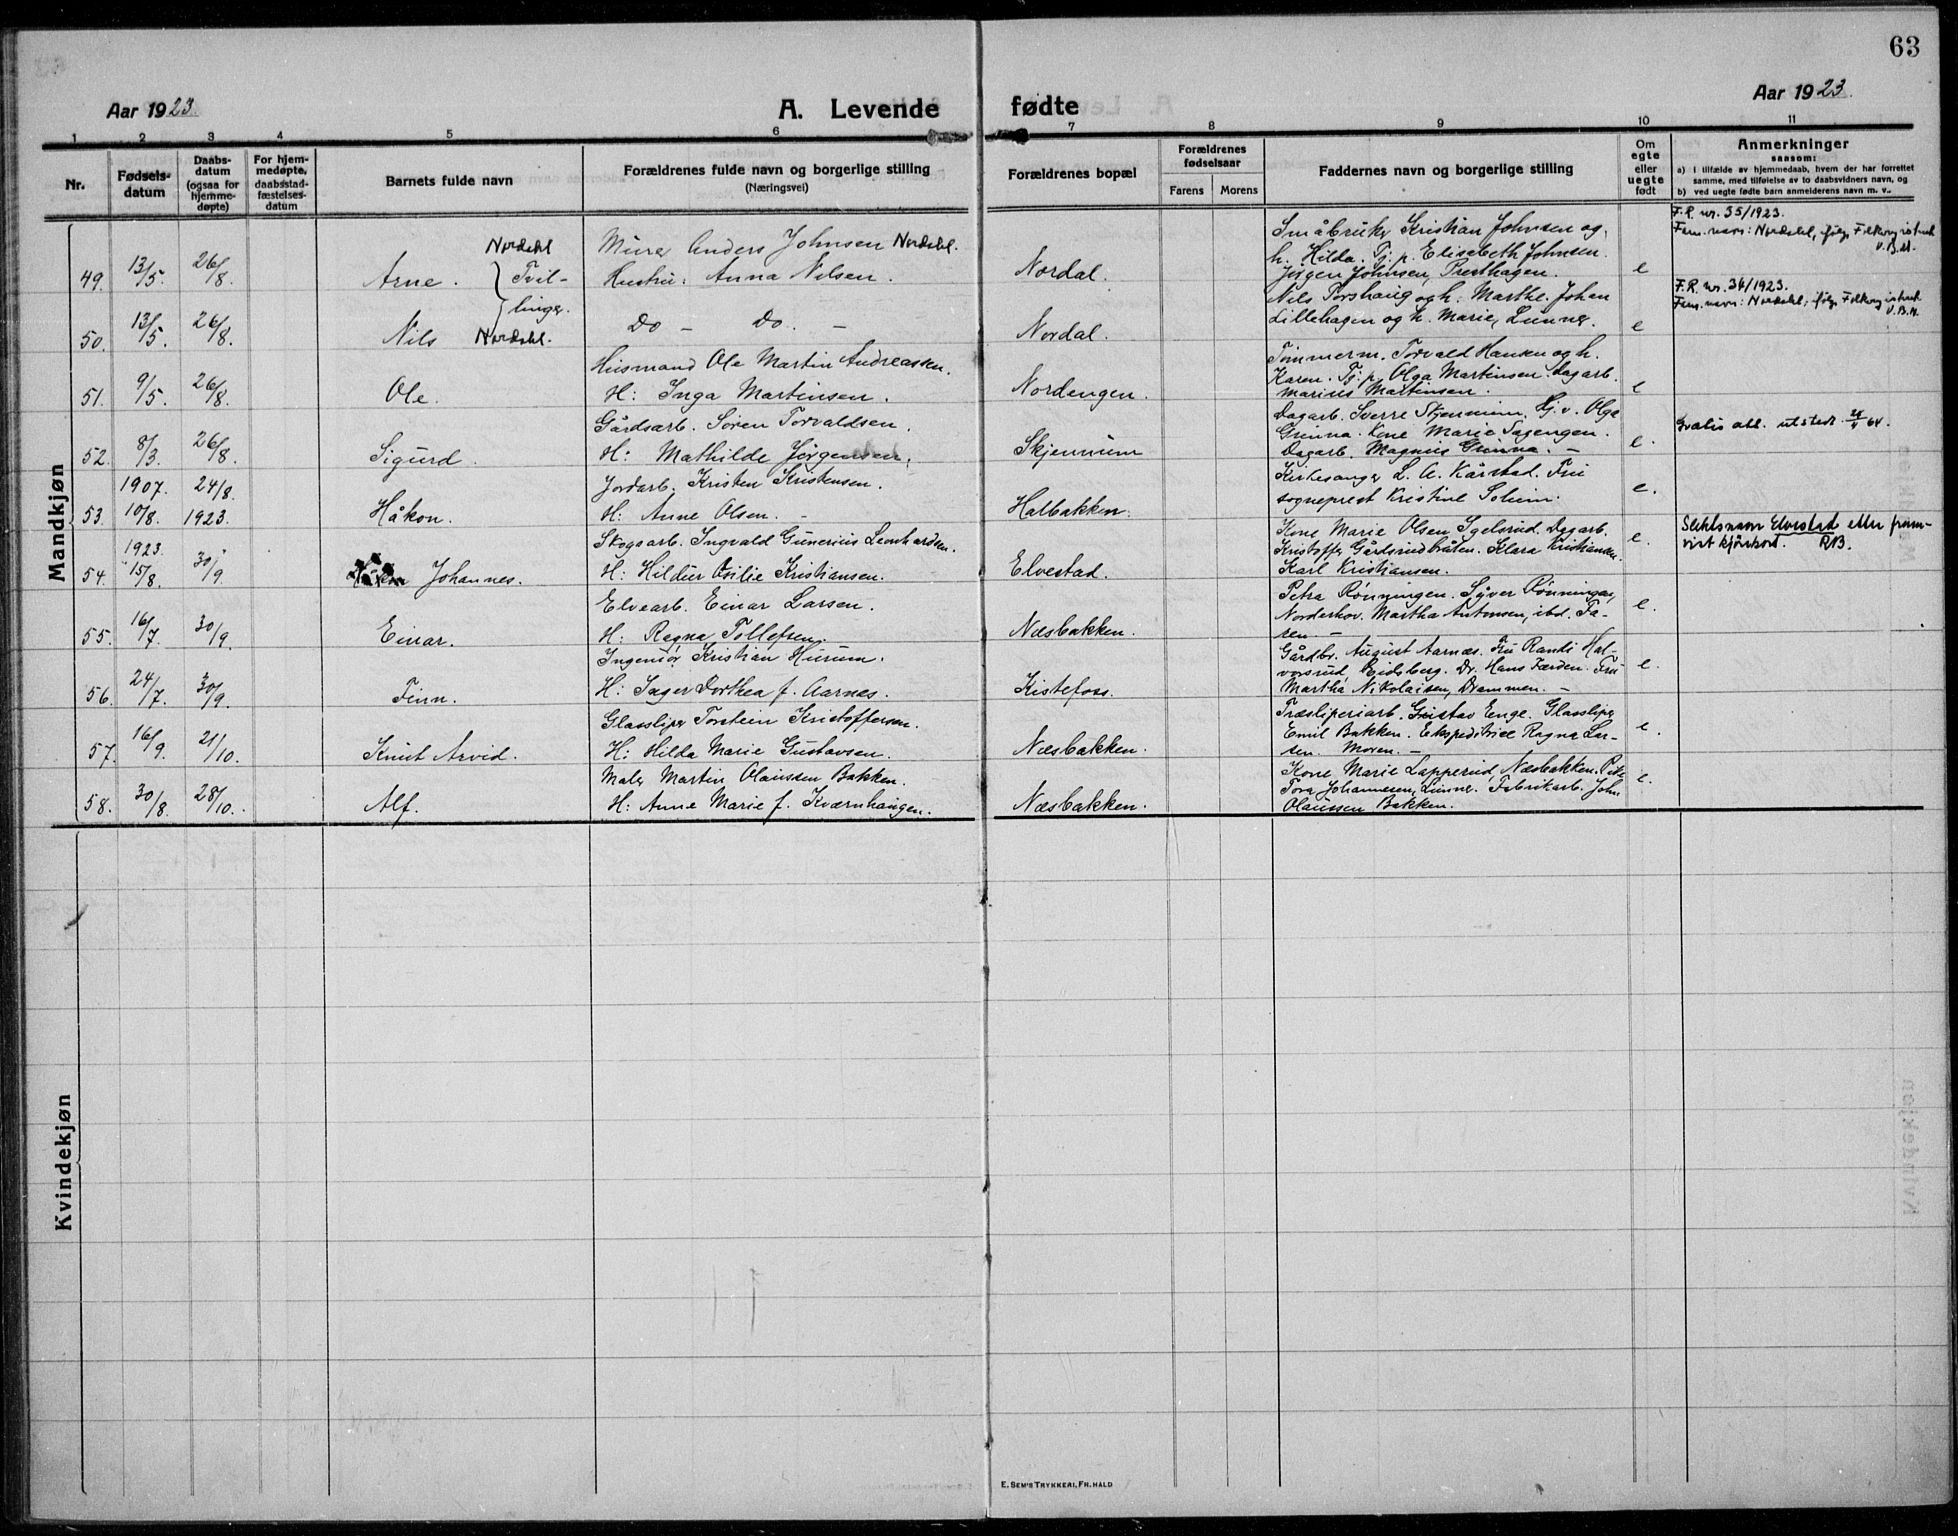 63
Aar 1923.
A. Levende fødte
Aar 1923.
1 2 3 4 5 6 7 8 9 10 11
Nr.
Fødsels-
datum
Daabs-
datum
(ogsaa for
hjemme-
døpte)
For hjem-
medøpte,
daabsstad-
fæstelses-
datum
Barnets fulde navn
Forældrenes fulde navn og borgerlige stilling
(Næringsvei)
Forældrenes bopæl
Forældrenes
fødselsaar
Farens Morens
Faddernes navn og borgerlige stilling
Om
egte
eller
uegte
født
Anmerkninger
saasom:
a) i tilfælde av hjemmedaab, hvem der har forrettet
samme, med tilføielse av to daabsvidners navn, og
b) ved uegte fødte barn anmelderens navn m. v.
Mandkjøn
49. 13/5. 26/8. Arne. Nordahl Tvil-
linger.
Murer Anders Johnsen Nordahl.
Hustru: Anna Nilsen.
Nordal.
Småbruker Kristian Johnsen og
h. Hilda. Tj. p. Elisabeth Johnsen.
Jørgen Johnsen, Presthagen.
e
F.R. nr. 35/1923.
Fam. navn: Nordahl, ifølge Folkeregistret
50. 13/5. 26/8. Nils Nordahl.
Do - Do. -
Nordal.
Nils Torshaug og h. Marthe. Johan
Lillehagen og h. Marie, Lunner.
e
F.R. nr. 36/1923.
Fam. navn: Nordahl, ifølge Folkeregistret
51. 9/5. 26/8. Ole.
Husmand Ole Martin Andreassen.
H: Inga Martinsen.
Nordengen.
Tømmerm. Torvald Hansen og h.
Karen. Tj. p. Olga Martinsen. Dagarb.
Marius Martinsen.
e
52. 8/3. 26/8. Sigurd.
Gårdsarb. Søren Torvaldsen.
H: Mathilde Jørgensen.
Skjennum
Dagarb. Sverre Skjennum. Olga
Grinna. Kone Marie Sagengen.
Dagarb. Magnus Grinna. -
e.
Gratis att. utstedt 64.
53. 1907. 10/8. 24/8. 1923. Håkon.
Jordarb. Kristen Kristensen.
H: Anne Olsen. -
Halbakken.
Kirkesanger L. A. Kårstad. Fru
sogneprest Kristine Solem.
e.
54. 1923. 15/8. 30/9. Johannes.
Skogsarb. Ingvald Gunerius Leonhardsen.
H: Hildur Osilie Kristiansen.
Elvestad.
Kone Marie Olsen Igelsrud. Dagarb.
Kristoffer Gårdsrudbråten. Klara Kristiansen.
Karl Kristiansen.
e.
Slektsnavn Elvestad etter frem-
vist kjørekort. RB.
55. 16/7. 30/9. Einar.
Elvearb. Einar Larsen.
H: Ragna Tollefsen.
Næsbakken.
Petra Rønningen. Syver Rønningen,
Norderhov. Martha Antonsen, ibd. Fa-
ren. -
e.
56. 24/7. 30/9. Finn.
Ingeniør Kristian Hurum.
H: Inger Dorthea f. Aarnes.
Kistefoss.
Gårdbr. August Aarnæs. Fru Randi Hal-
vorsrud, Eidsberg. Dr. Hans Jærden. Fru
Martha Nikolaisen, Drammen. -
e.
57. 16/9. 21/10. Knut Arvid.
Glassliper Torstein Kristoffersen.
H: Hilda Marie Gustavsen.
Næsbakken.
Træsliperiarb. Gustav Enge. Glassliper
Emil Bakken. Ekspeditrice Ragna Lar-
sen. Moren. -
e.
58. 30/8. 28/10. Alf.
Maler Martin Olaussen Bakken.
H: Anne Marie f. Kværnhaugen.
Næsbakken.
Kone Marie Lapperud, Næsbakken.
Tora Johannesen, Lunner. Fabrikarb. John
Olaussen Bakken.
e.
Kvindekjøn
E. SEM'S TRYKKERI, FR.HALD